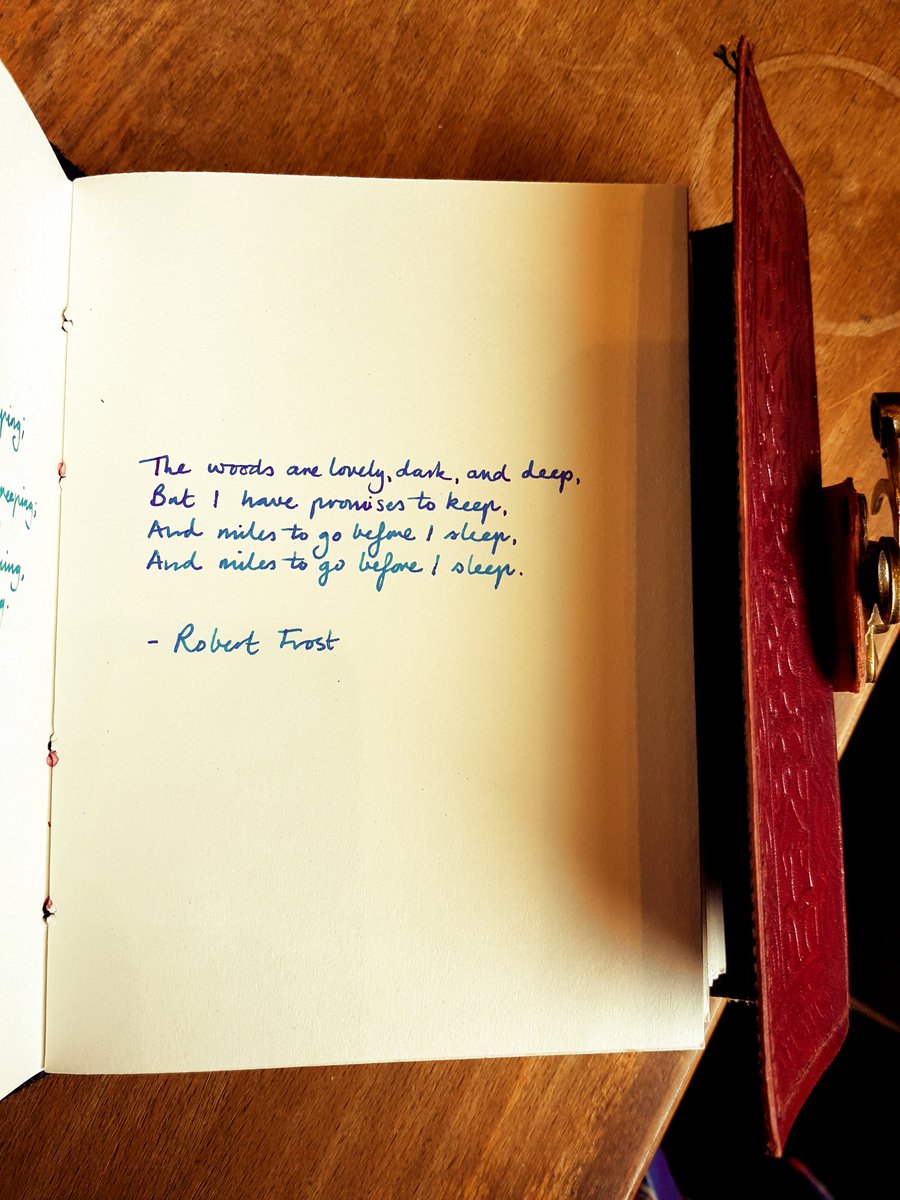 The woods are lovely, dark, and deep,
But I have promises to keep,
And miles to go before I sleep,
And miles to go before I sleep.
- Robert Frost